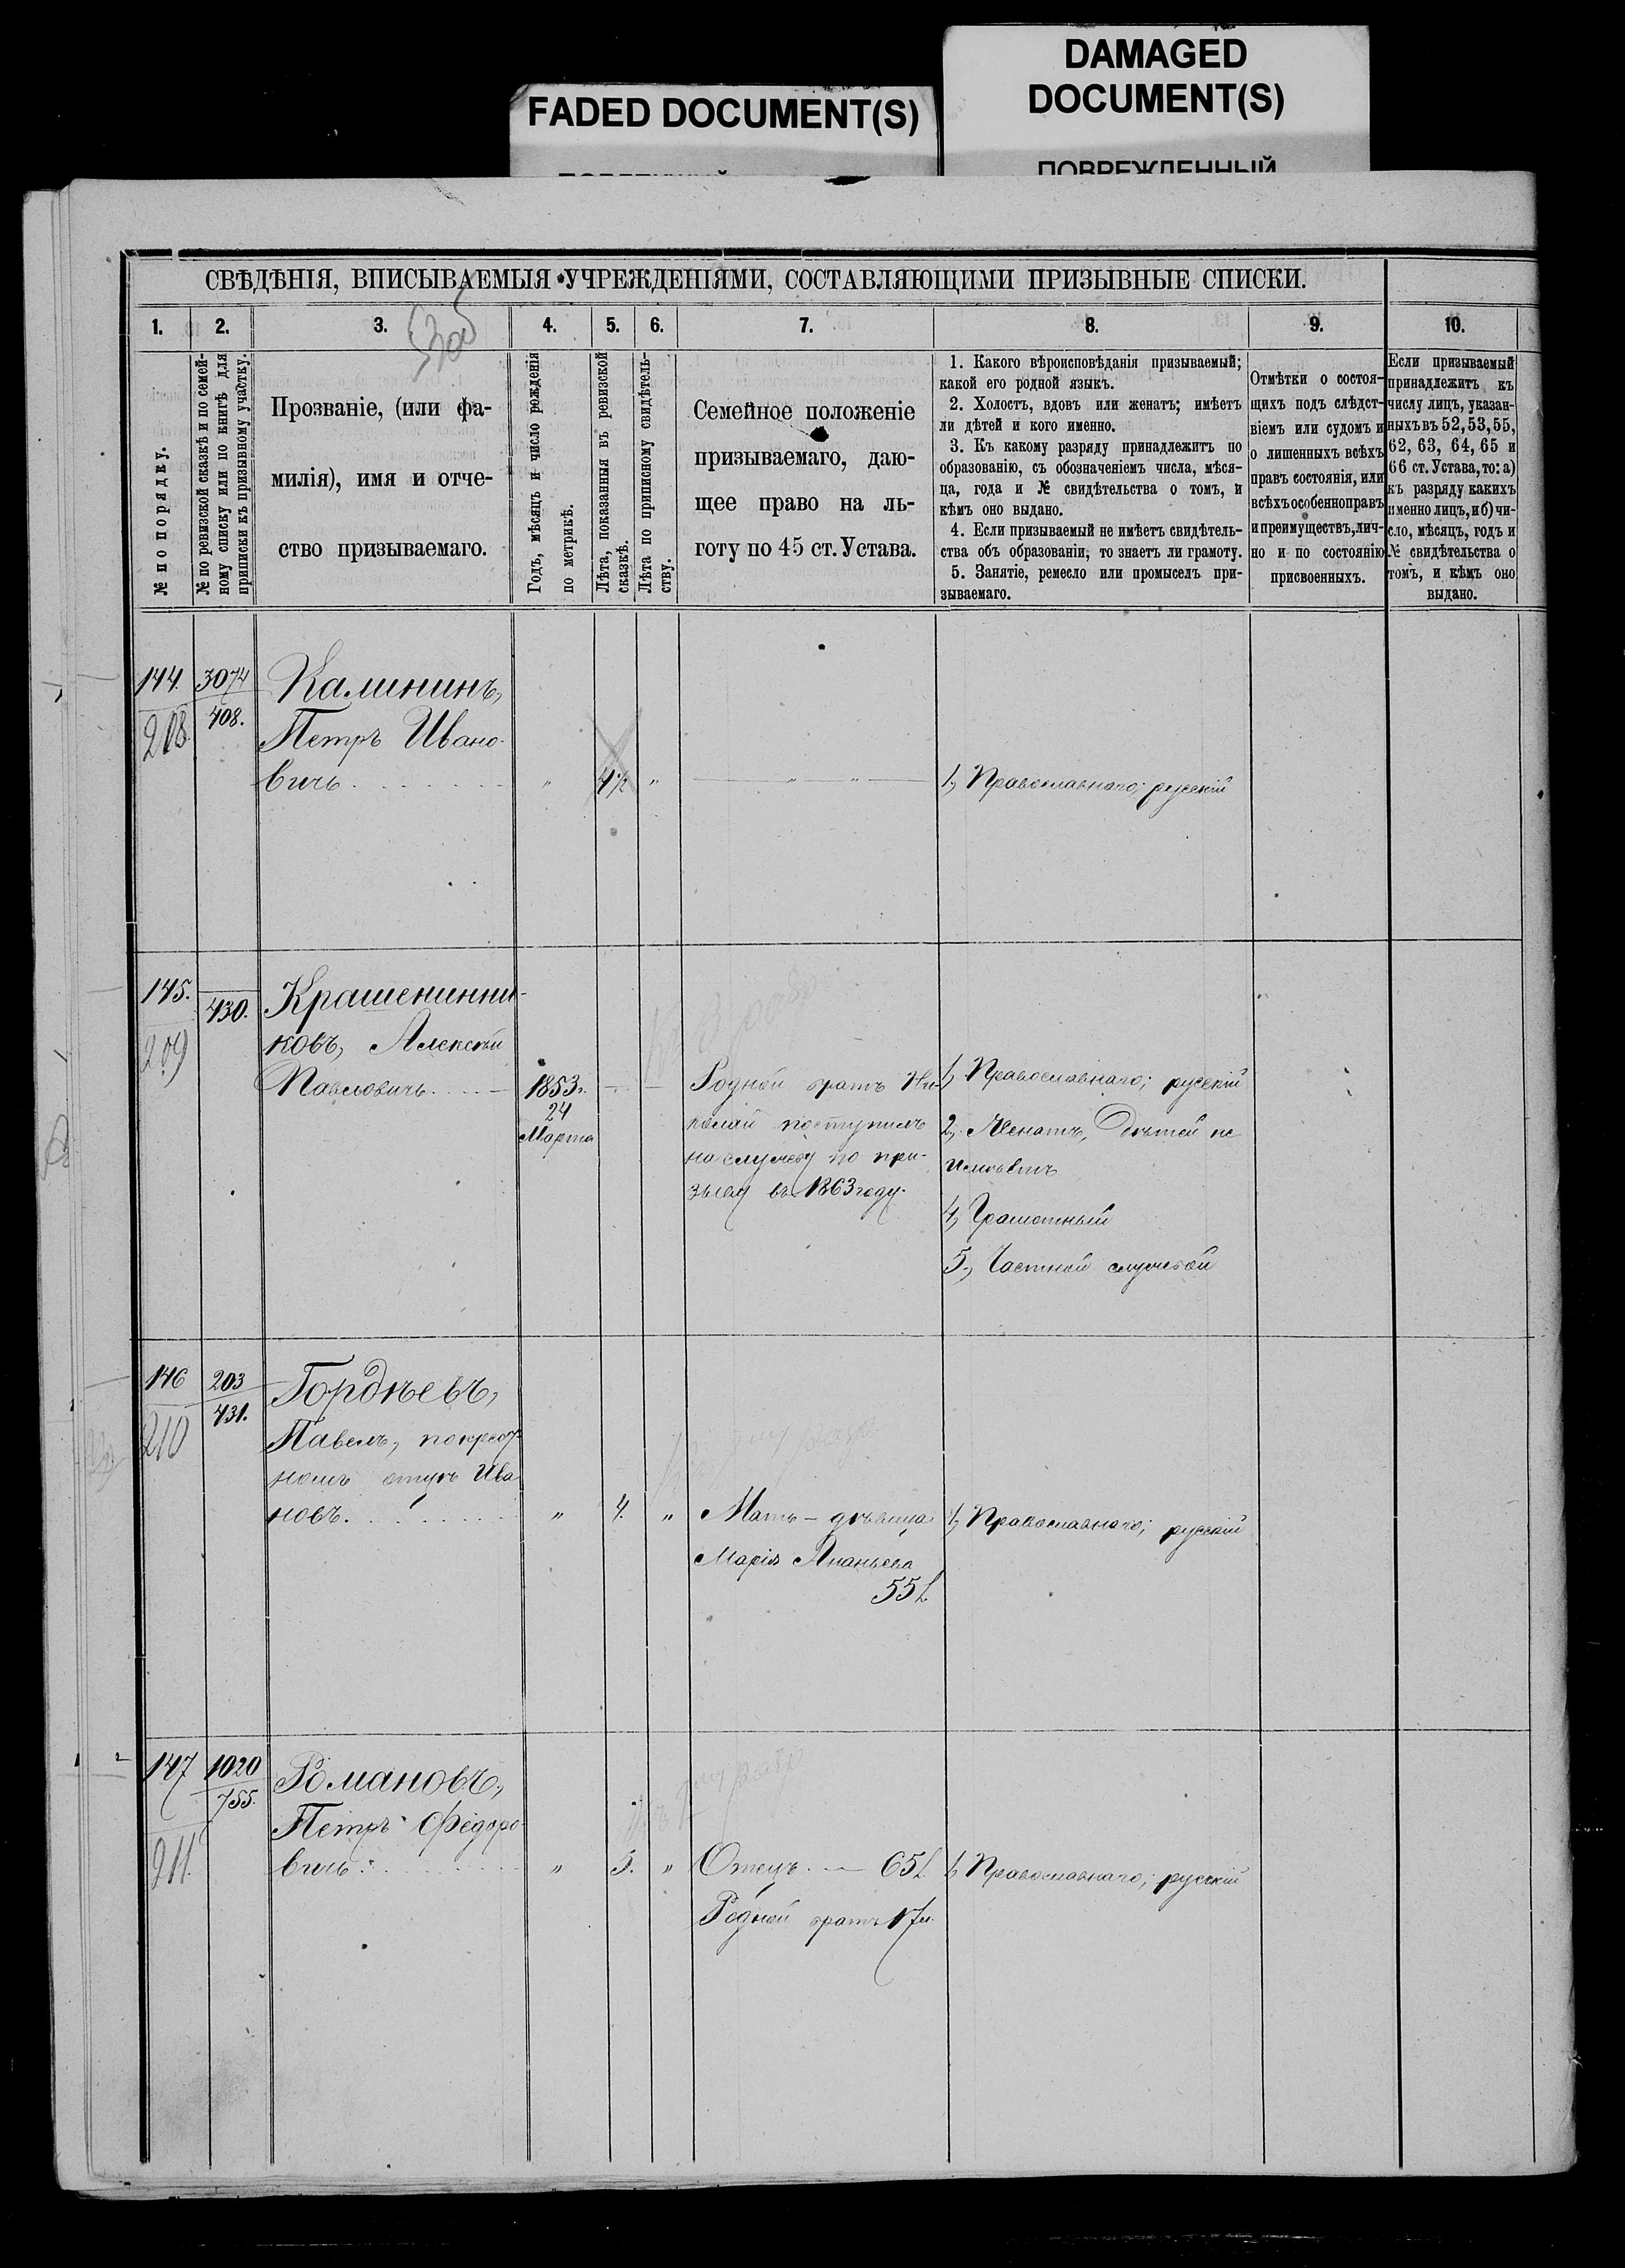 FADED DOCUMENT(S)
DAMAGED
DOCUMENT(S)
ПОВРЕЖДЕННЫЙ
СВѢДѢНІЯ, ВПИСЫВАЕМЫЯ УЧРЕЖДЕНІЯМИ, СОСТАВЛЯЮЩИМИ ПРИЗЫВНЫЕ СПИСКИ.
1.
2.
3.
4.
5.
6.
7.
8.
9.
10.
№ по порядку.
№ по ревизской сказкѣ и по семей-
ному списку или по книгѣ для
приписки къ призывному участку.
Прозваніе, (или фа-
милія), имя и отче-
ство призываемаго.
Годъ, мѣсяцъ и число рожденія
по метрикѣ.
Лѣта, показанныя въ ревизской
сказкѣ.
Лѣта по приписному свидѣтель-
ству.
Семейное положеніе
призываемаго, даю-
щее право на ль-
готу по 45 ст. Устава.
1. Какого вѣроисповѣданія призываемый;
какой его родной языкъ.
2. Холостъ, вдовъ или женатъ; имѣетъ
ли дѣтей и кого именно.
3. Къ какому разряду принадлежитъ по
образованію, съ обозначеніемъ числа, мѣся-
ца, года и № свидѣтельства о томъ, и
кѣмъ оно выдано.
4. Если призываемый не имѣетъ свидѣтель-
ства объ образованіи, то знаетъ ли грамоту.
5. Занятіе, ремесло или промыселъ при-
зываемаго.
Отмѣтки о состоя-
щихъ подъ слѣдст-
віемъ или судомъ и
о лишенныхъ всѣхъ
правъ состоянія, или
всѣхъ особенно правъ
и преимуществъ, лич-
но и по состоянію
присвоенныхъ.
Если призываемый
принадлежитъ къ
числу лицъ, указан-
ныхъ въ 52, 53, 55,
62, 63, 64, 65 и
66 ст. Устава, то: а)
къ разряду какихъ
именно лицъ, и б) чи-
сло, мѣсяцъ, годъ и
№ свидѣтельства о
томъ, и кѣмъ оно
выдано.
144.
208.
3074
408.
Калининъ,
Петръ Ивано-
вичъ
"
4 1/2
"
" "
1, Православнаго; русскій
145.
209
430.
Крашенинни-
ковъ, Алексѣй
Павловичъ
1853 г.
24
Марта
Родной братъ Ни-
колай поступилъ
на службу по при-
зыву въ 1863 году.
1, Православнаго; русскій
2, Женатъ, дѣтей не
имѣетъ
4, Грамотный
5, Частной службой
146
210
203
431.
Гордѣевъ,
Павелъ, по крест-
номъ отцѣ Ива
новъ.
"
4.
"
Мать - дѣвица
Марія Ананьева
55 л.
1, Православнаго; русскій
147
211.
1020
755.
Романовъ,
Петръ Ѳедоро-
вичъ
"
5.
"
Отецъ. — 65 л.
Родной братъ 17 л.
1, Православнаго; русскій